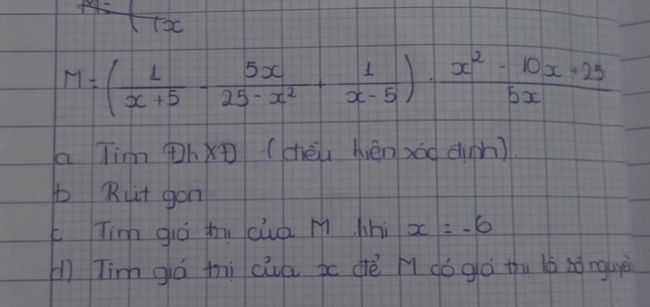 M = (
1x
M = ( 1/(x+5) - 5x/(25-x²) + 1/(x-5) ) · (x² - 10x + 25)/(5x)
a Tìm ĐkXĐ (điều kiện xác định).
b Rút gọn
c Tìm giá trị của M khi x = -6
d) Tìm giá trị của x để M có giá trị là số nguyê